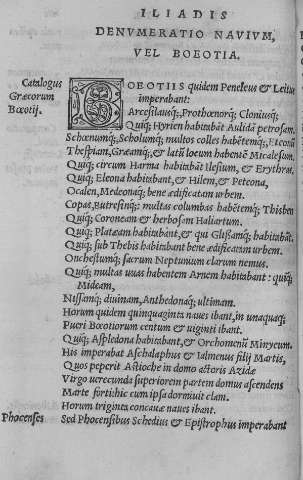 ILIADIS
DENVMERATIO NAVIVM,
VEL BOEOTIA.
Catalogus
Græcorum
Bœotij.
BOEOTIIS quidem Peneleus & Leitus
imperabant:
Arcesilausq;, Prothœnorq;, Cloniusq;
Quiq; Hyrien habitabãt Aulidã petrosam,
Schœnumq;, Scholumq; multos colles habẽtemq;, Eteonũ
Thespian, Græamq;, & latũ locum habentẽ Micalesum,
Quiq; circum Harma habitabãt Ilesium, & Erythras,
Quiq; Eleona habitabant, & Hilem, & Peteona,
Ocalen, Medeonaq; bene ædificatam urbem.
Copas, Eutresinq;: multas columbas habẽtemq; Thisben
Quiq; Coroneam & herbosam Haliartum.
Quiq; Plateam habitabant, & qui Glissamq; habitabãt.
Quiq; sub Thebis habitabant bene ædificatam urbem.
Onchestumq; sacrum Neptunium clarum nemus.
Quiq; multas uuas habentem Arnem habitabant: quiq;
Mideam,
Nissamq; diuinam, Anthedonaq; ultimam.
Horum quidem quinquaginta naues ibant, in unaquaq;
Pueri Bœotiorum centum & uiginti ibant.
Quiq; Aspledona habitabant, & Orchomenũ Minyeum.
His imperabat Aschalaphus & Ialmenus filij Martis,
Quos peperit Astioche in domo actoris Azidæ
Virgo uerecunda superiorem partem domus ascendens
Marte forti: hic cum ipsa dormiuit clam.
Horum triginta concauæ naues ibant.
Phocenses Sed Phocensibus Schedius & Epistrophus imperabant